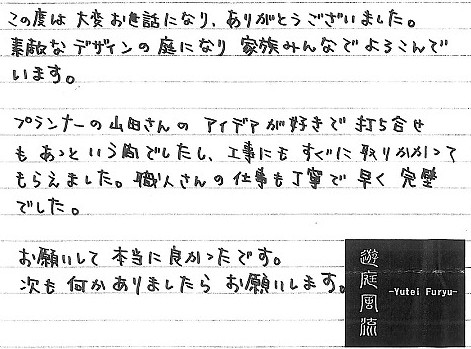 この度は大変お世話になり、ありがとうございました。
素敵なデザインの庭になり 家族みんなでよろこんで
います。
プランナーの山田さんの アイデアが好きで 打ち合せ
も あっという間でしたし、工事にも すぐに 取りかかって
もらえました。職人さんの仕事も丁寧で 早く 完璧
でした。
お願いして 本当に良かったです。
次も 何かありましたら お願いします。
遊庭風流
-Yutei Furyu-